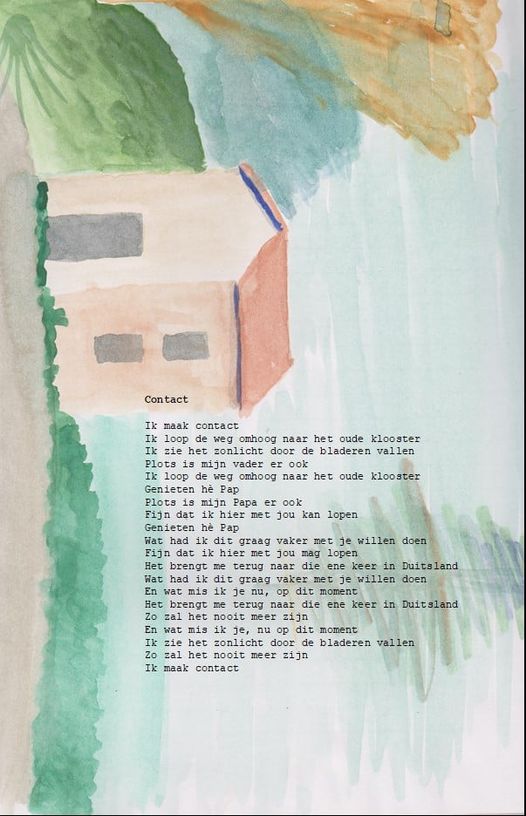 Contact
Ik maak contact
Ik loop de weg omhoog naar het oude klooster
Ik zie het zonlicht door de bladeren vallen
Plots is mijn vader er ook
Ik loop de weg omhoog naar het oude klooster
Genieten hè Pap
Plots is mijn Papa er ook
Fijn dat ik hier met jou kan lopen
Genieten hè Pap
Wat had ik dit graag vaker met je willen doen
Fijn dat ik hier met jou mag lopen
Het brengt me terug naar die ene keer in Duitsland
Wat had ik dit graag vaker met je willen doen
En wat mis ik je nu, op dit moment
Het brengt me terug naar die ene keer in Duitsland
Zo zal het nooit meer zijn
En wat mis ik je, nu op dit moment
Ik zie het zonlicht door de bladeren vallen
Zo zal het nooit meer zijn
Ik maak contact